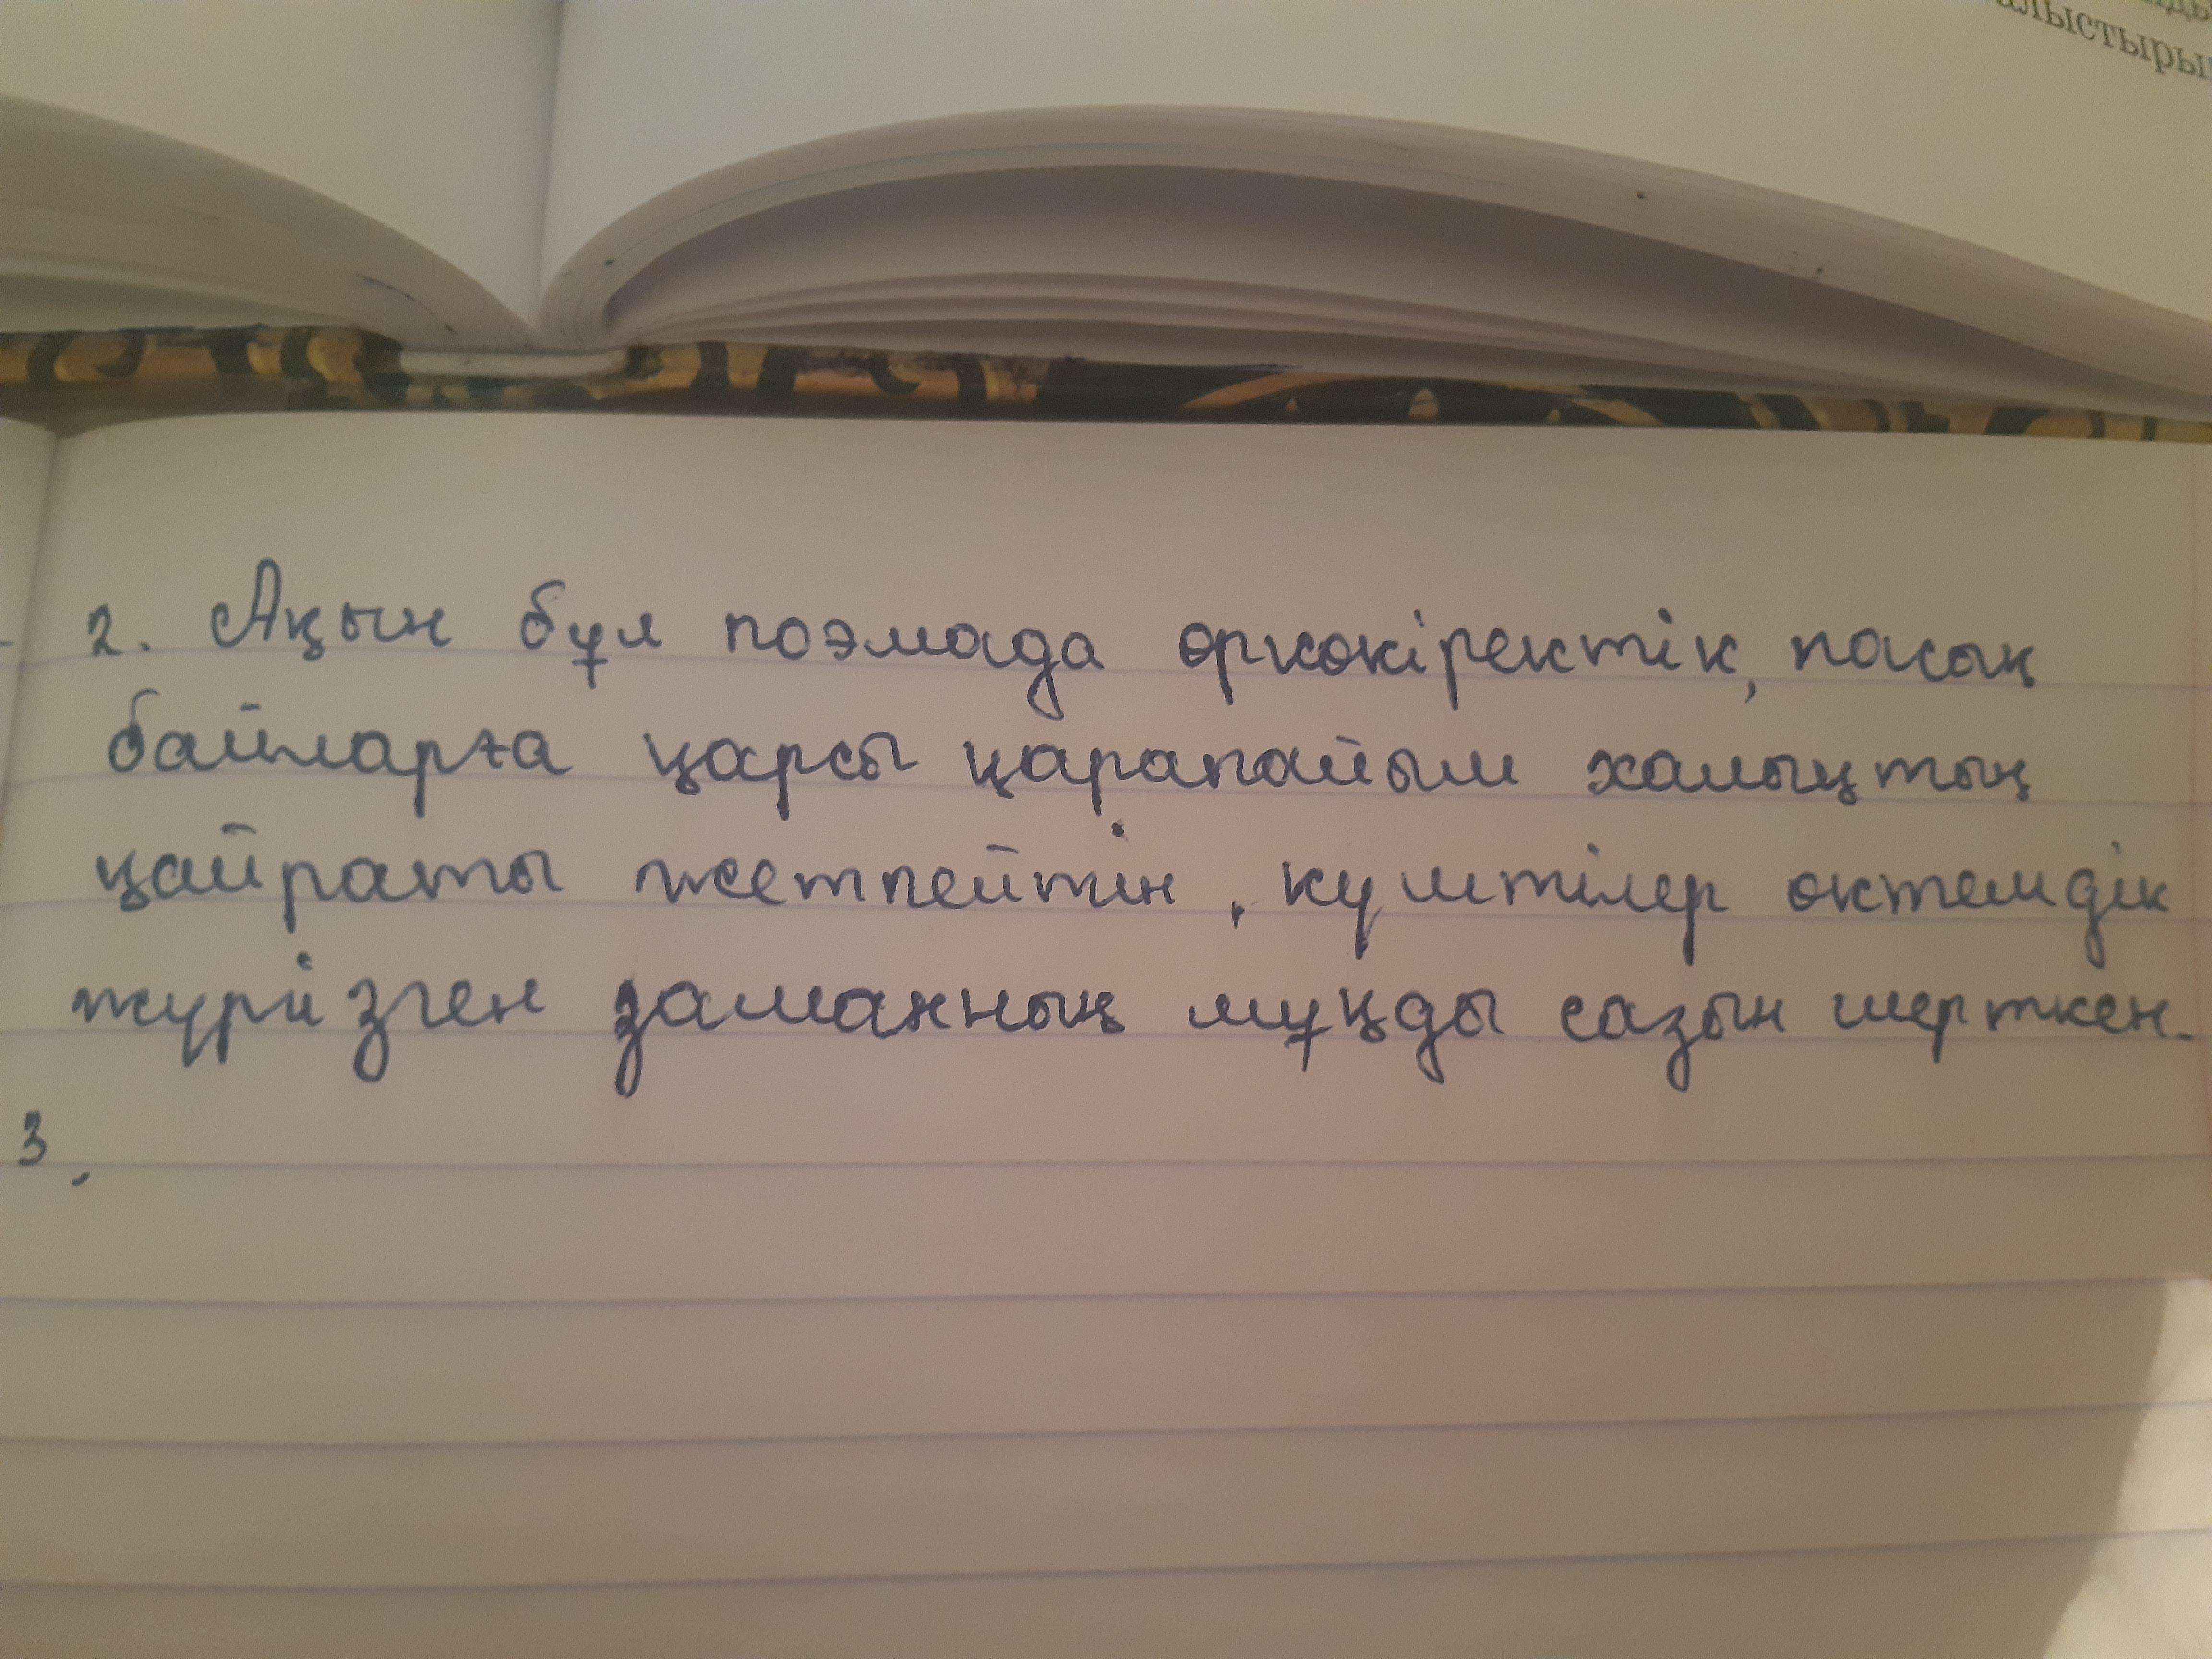 алыстыры
2. Ақын бұл поэмада өркөкіректік, посық
байларға қарсы қарапайым халықтың
қайраты жетпейтін, күштілер өктемдік
жүргізген заманның мұңды сазын шерткен.
3.